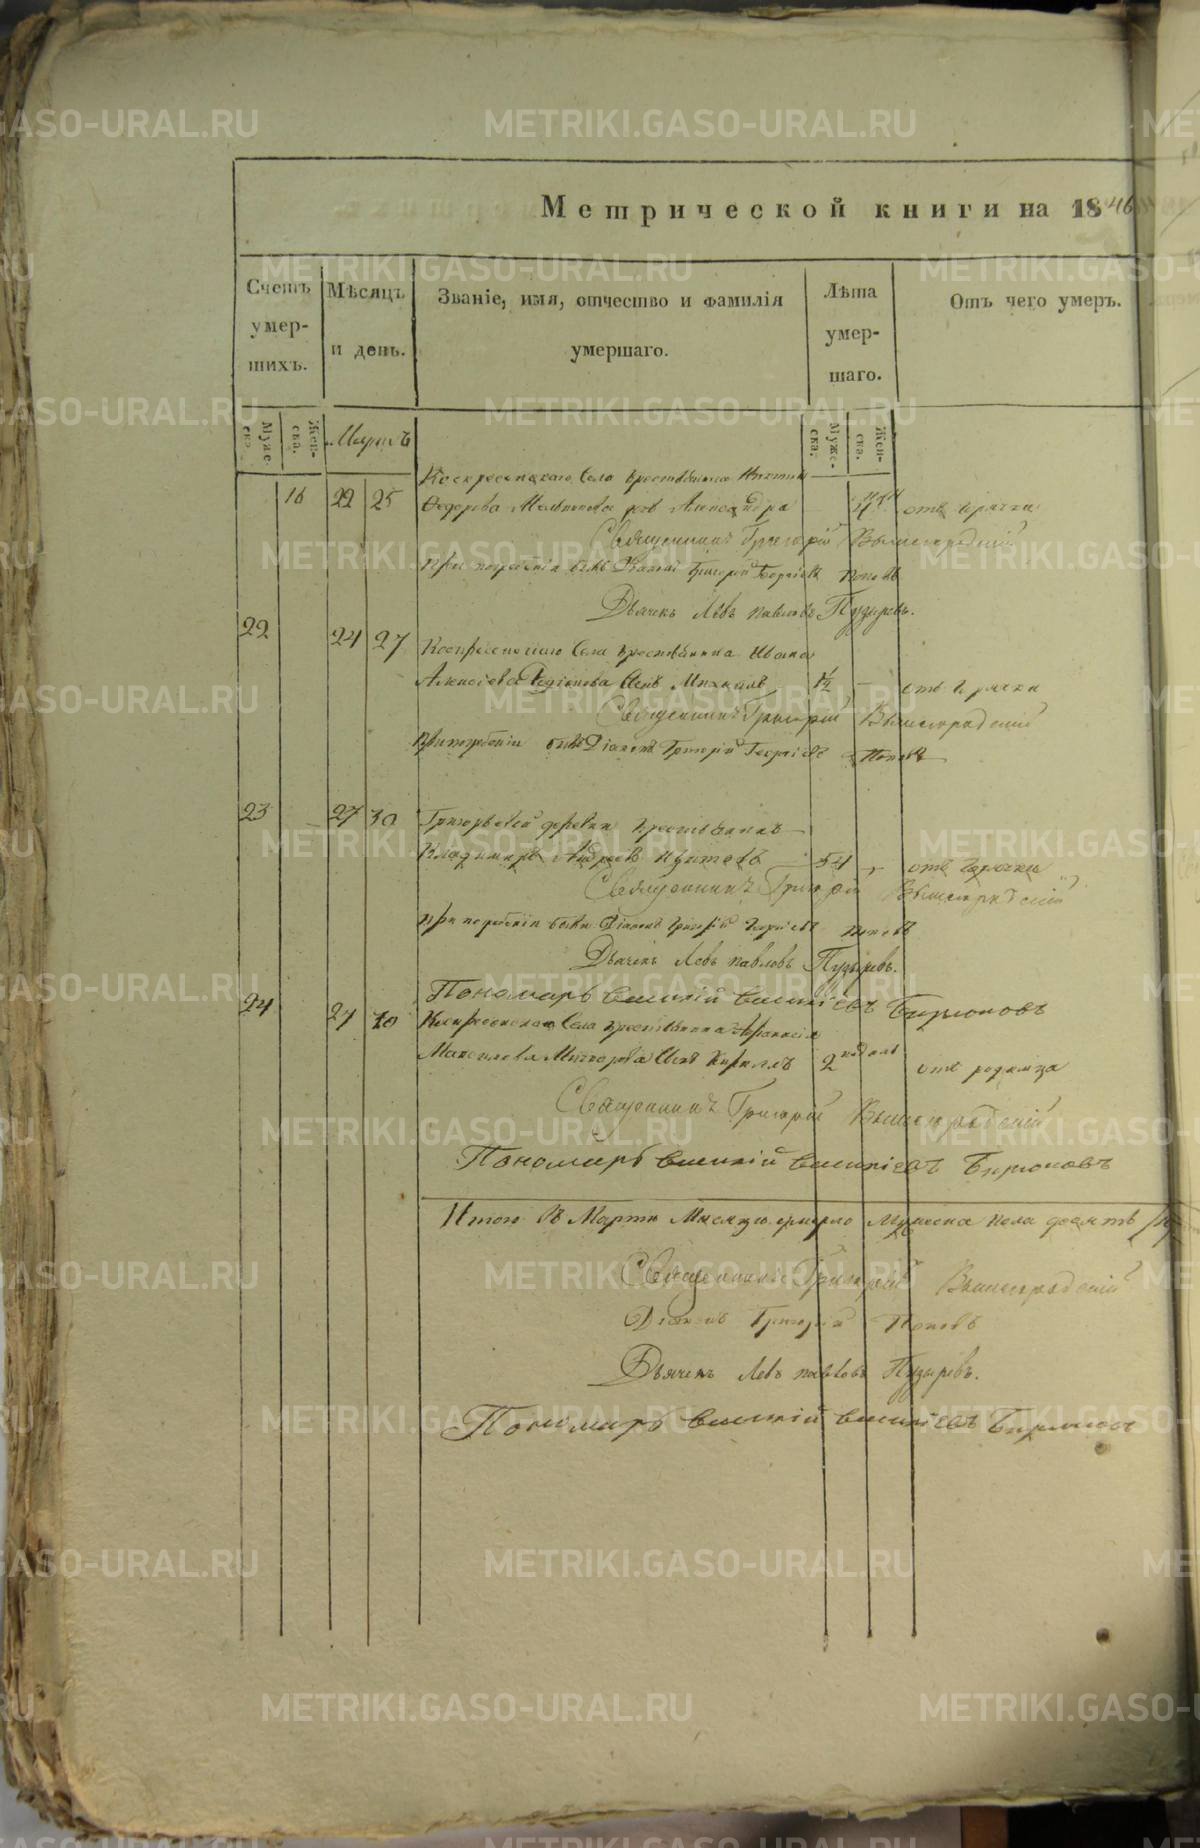 Метрической книги на 1846
Счетъ умер-шихъ.
Мѣсяцъ и день.
Званіе, имя, отчество и фамилія умершаго.
Лѣта умер-шаго.
Отъ чего умеръ.
Мужеска.
Женска.
Мартъ
Мужеска.
Женска.
Воскресенскаго Села крестьянина Никиты
16 22 25 Федорова Мельникова дочь Александра отъ горячки
Священникъ Григорій Вышегородскій
При погребеніи былъ Діаконъ Григорій Георгіевъ Поповъ
Дьячекъ Левъ Павловъ Пузыревъ.
22 24 27 Воскресенскаго Села крестьянина Ивана
Алексіева сынъ Михаилъ 1/2 – отъ горячки
Священникъ Григорій Вышегородскій
При погребеніи былъ Діаконъ Григорій Георгіевъ Поповъ
23 27 30 Григорьевой деревни крестьянинъ
Владимиръ Андреевъ 54 – отъ горячки
Священникъ Григорій Вышегородскій
При погребеніи былъ Діаконъ Григорій Георгіевъ Поповъ
Дьячекъ Левъ Павловъ Пузыревъ.
Пономарь Василій Василіевъ Бирюковъ
24 27 30 Воскресенскаго Села крестьянина Афанасія
Максимова сынъ Кириллъ 2 недель отъ родимца
Священникъ Григорій Вышегородскій
Пономарь Василій Василіевъ Бирюковъ
Итого въ Марте Месяце умерло Мужеска пола десять
Священникъ Григорій Вышегородскій
Діаконъ Григорій Поповъ
Дьячекъ Левъ Павловъ Пузыревъ.
Пономарь Василій Василіевъ Бирюковъ
METRIKI.GASO-URAL.RU